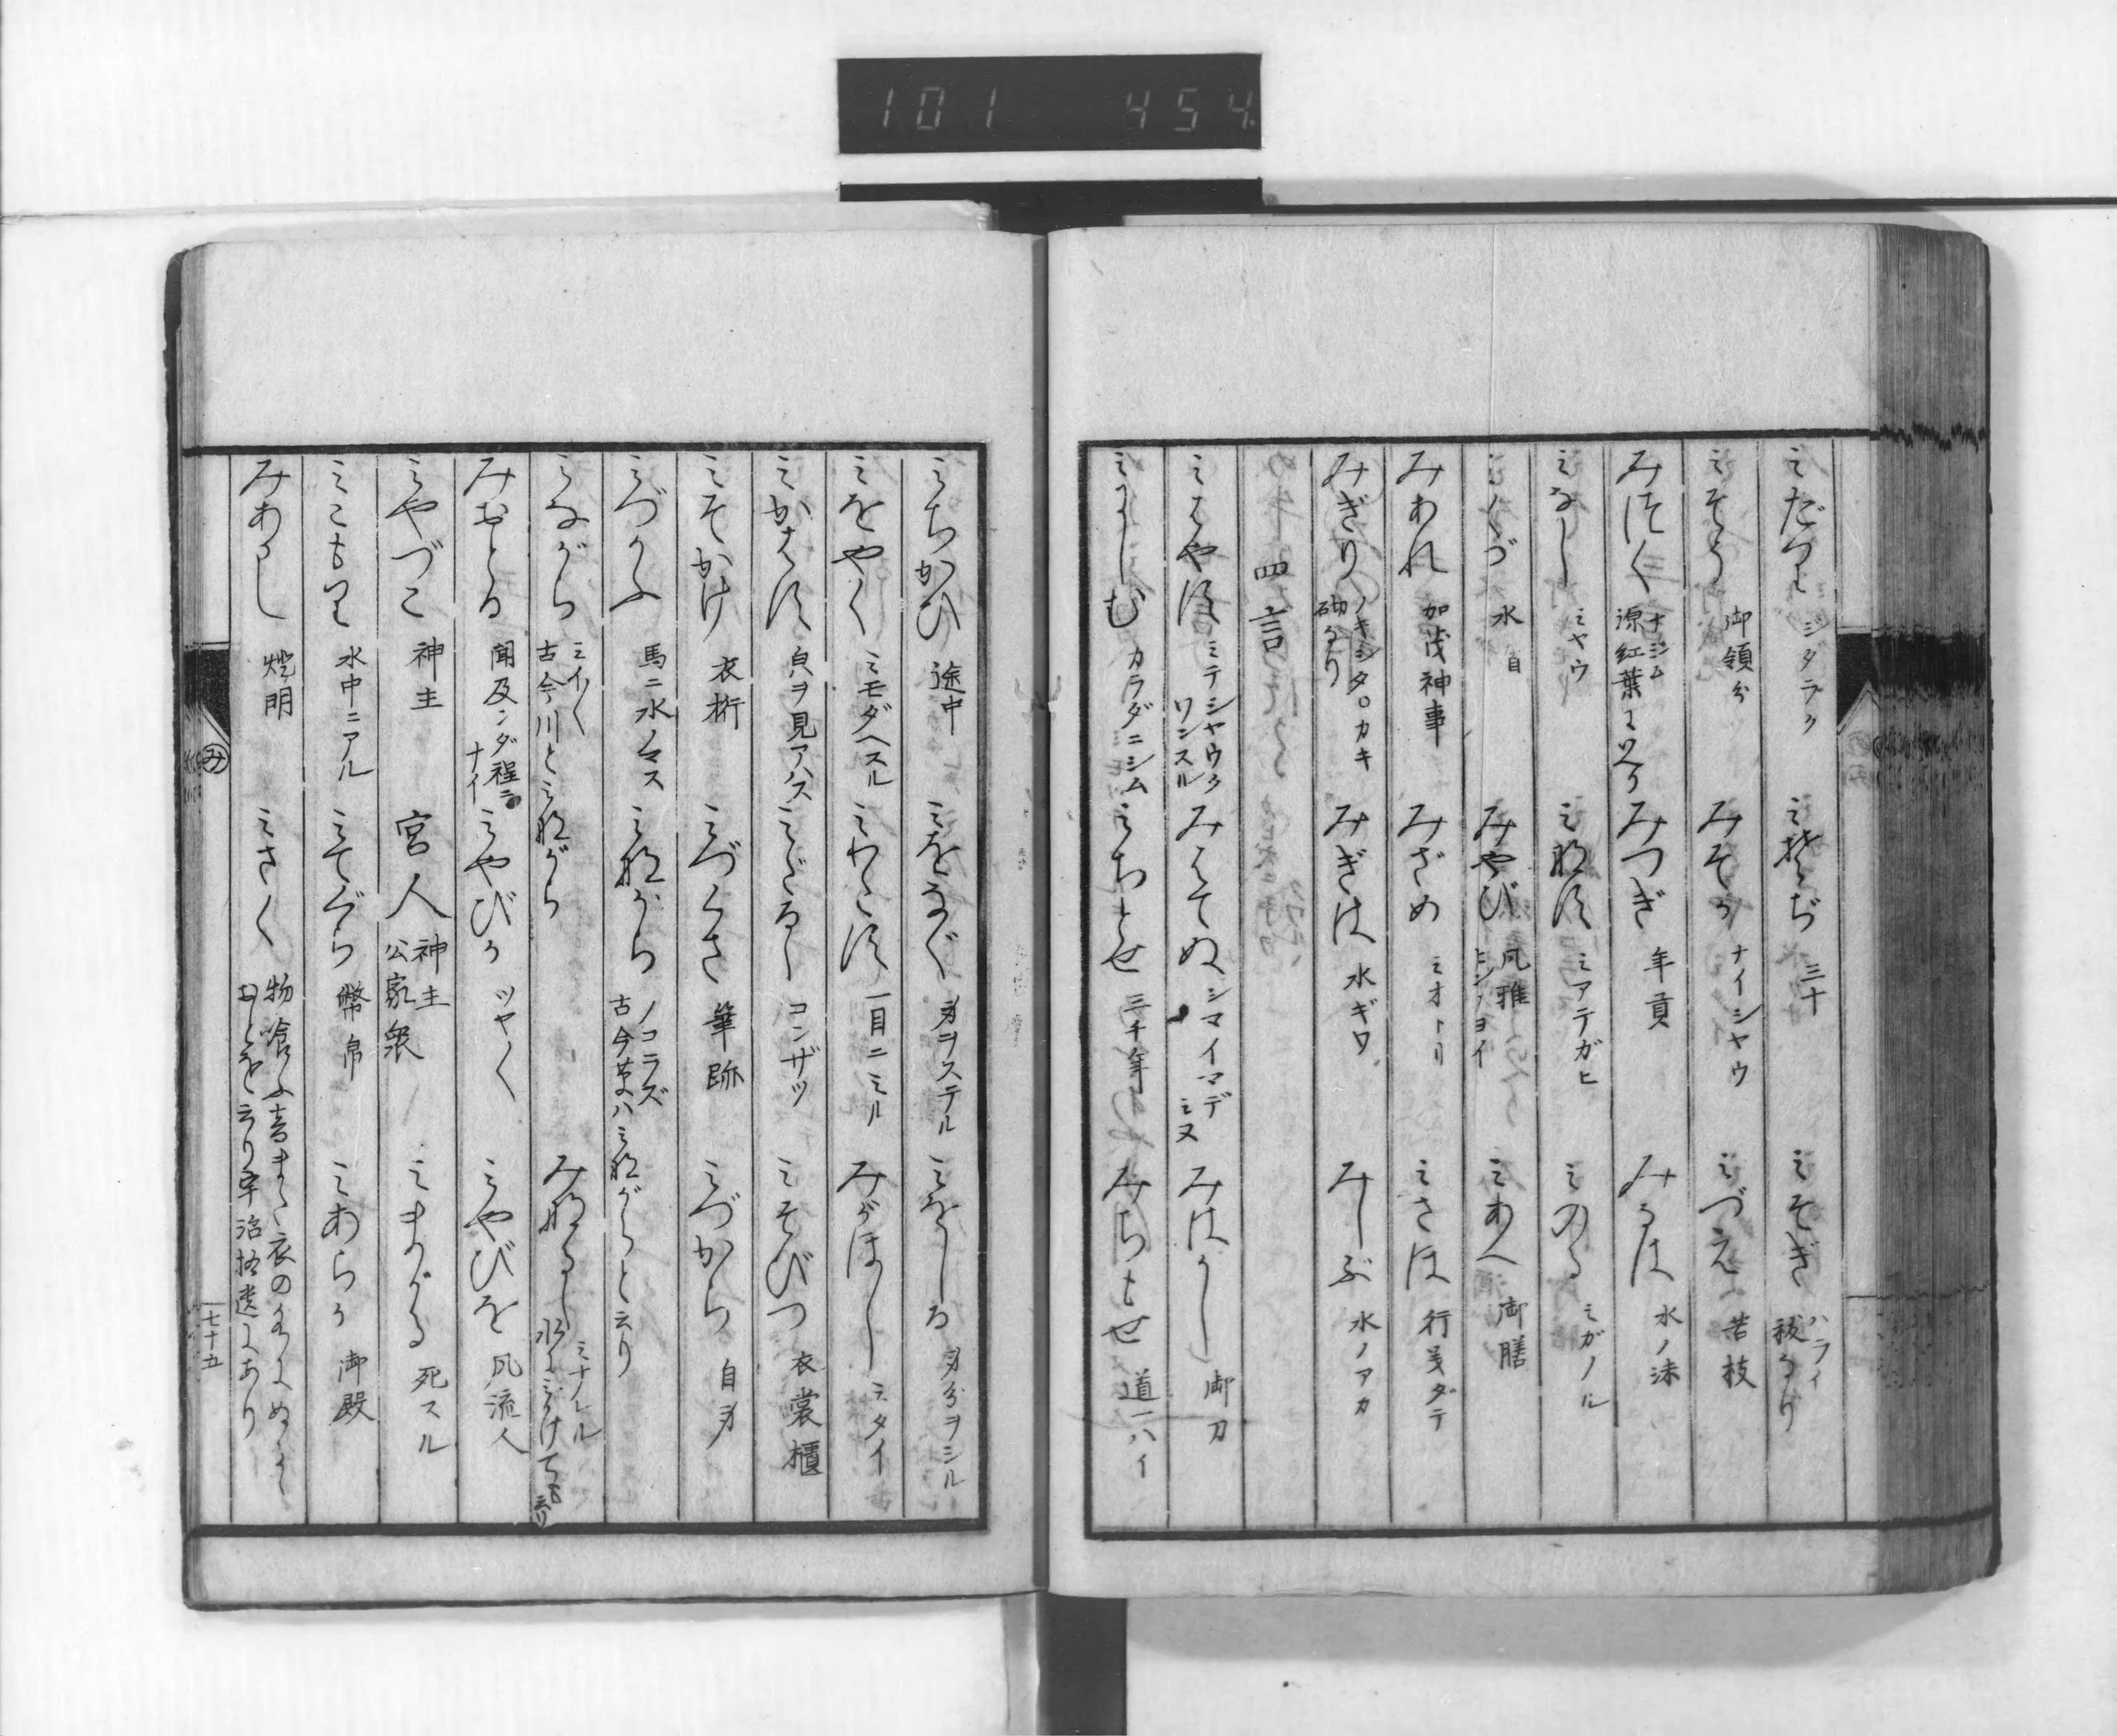 101 454
みだり ミダラク みそぢ 三十 みそぎ ハライ 祓なり
みそう 御領分 みそか ナイシヤウ みづえ 苔枝
みつく ナジム 源紅葉にいへり みつぎ 年貢 みるは 水ノ沫
みなし ミヤウ みなす ミアテガヒ みのる ミガノル
みくづ 水 みやび 風雅 みあへ 御膳
みあれ 加茂神事 みざめ ミオトリ みさほ 行義ダテ
みぎり ノキシタ○カキ 砌なり みぎは 水ギワ みしぶ 水ノアカ
四言
みはやす ミテシヤウクワンスル みはてぬ シマイマデミヌ みはかし 御刀
みにしむ カラダニシム みちとせ 三千年 みちもせ 道一ハイ
みちかひ 途中 みをなぐ 身ヲステル みをしる 身分ヲシル
みをやく ミモダヘスル みわたす 一目ニミル みがほし ミタイ
みかはす 皃ヲ見アハス みだるゝ コンザツ みそびつ 衣裳櫃
みそかけ 衣桁 みづくさ 筆跡 みづから 自身
みづかふ 馬ニ水ノマス みながら ノコラズ 古今 ハみながらと云り
みながら ミイ〱 古今川とみながら みなるゝ ミナレル 水にかけて云り
みおとる 聞及ンダ程ニナイ みやびか ツヤ〱 みやびを 風流人
みやづこ 神主 宮人 神主 公家衆 みまかる 死スル
みこもり 水中ニアル みてぐら 幣帛 みあらか 御殿
みあかし 燈明 みさく 物喰ふ音また衣の おとを云り宇治拾遺にあり
み
七十五